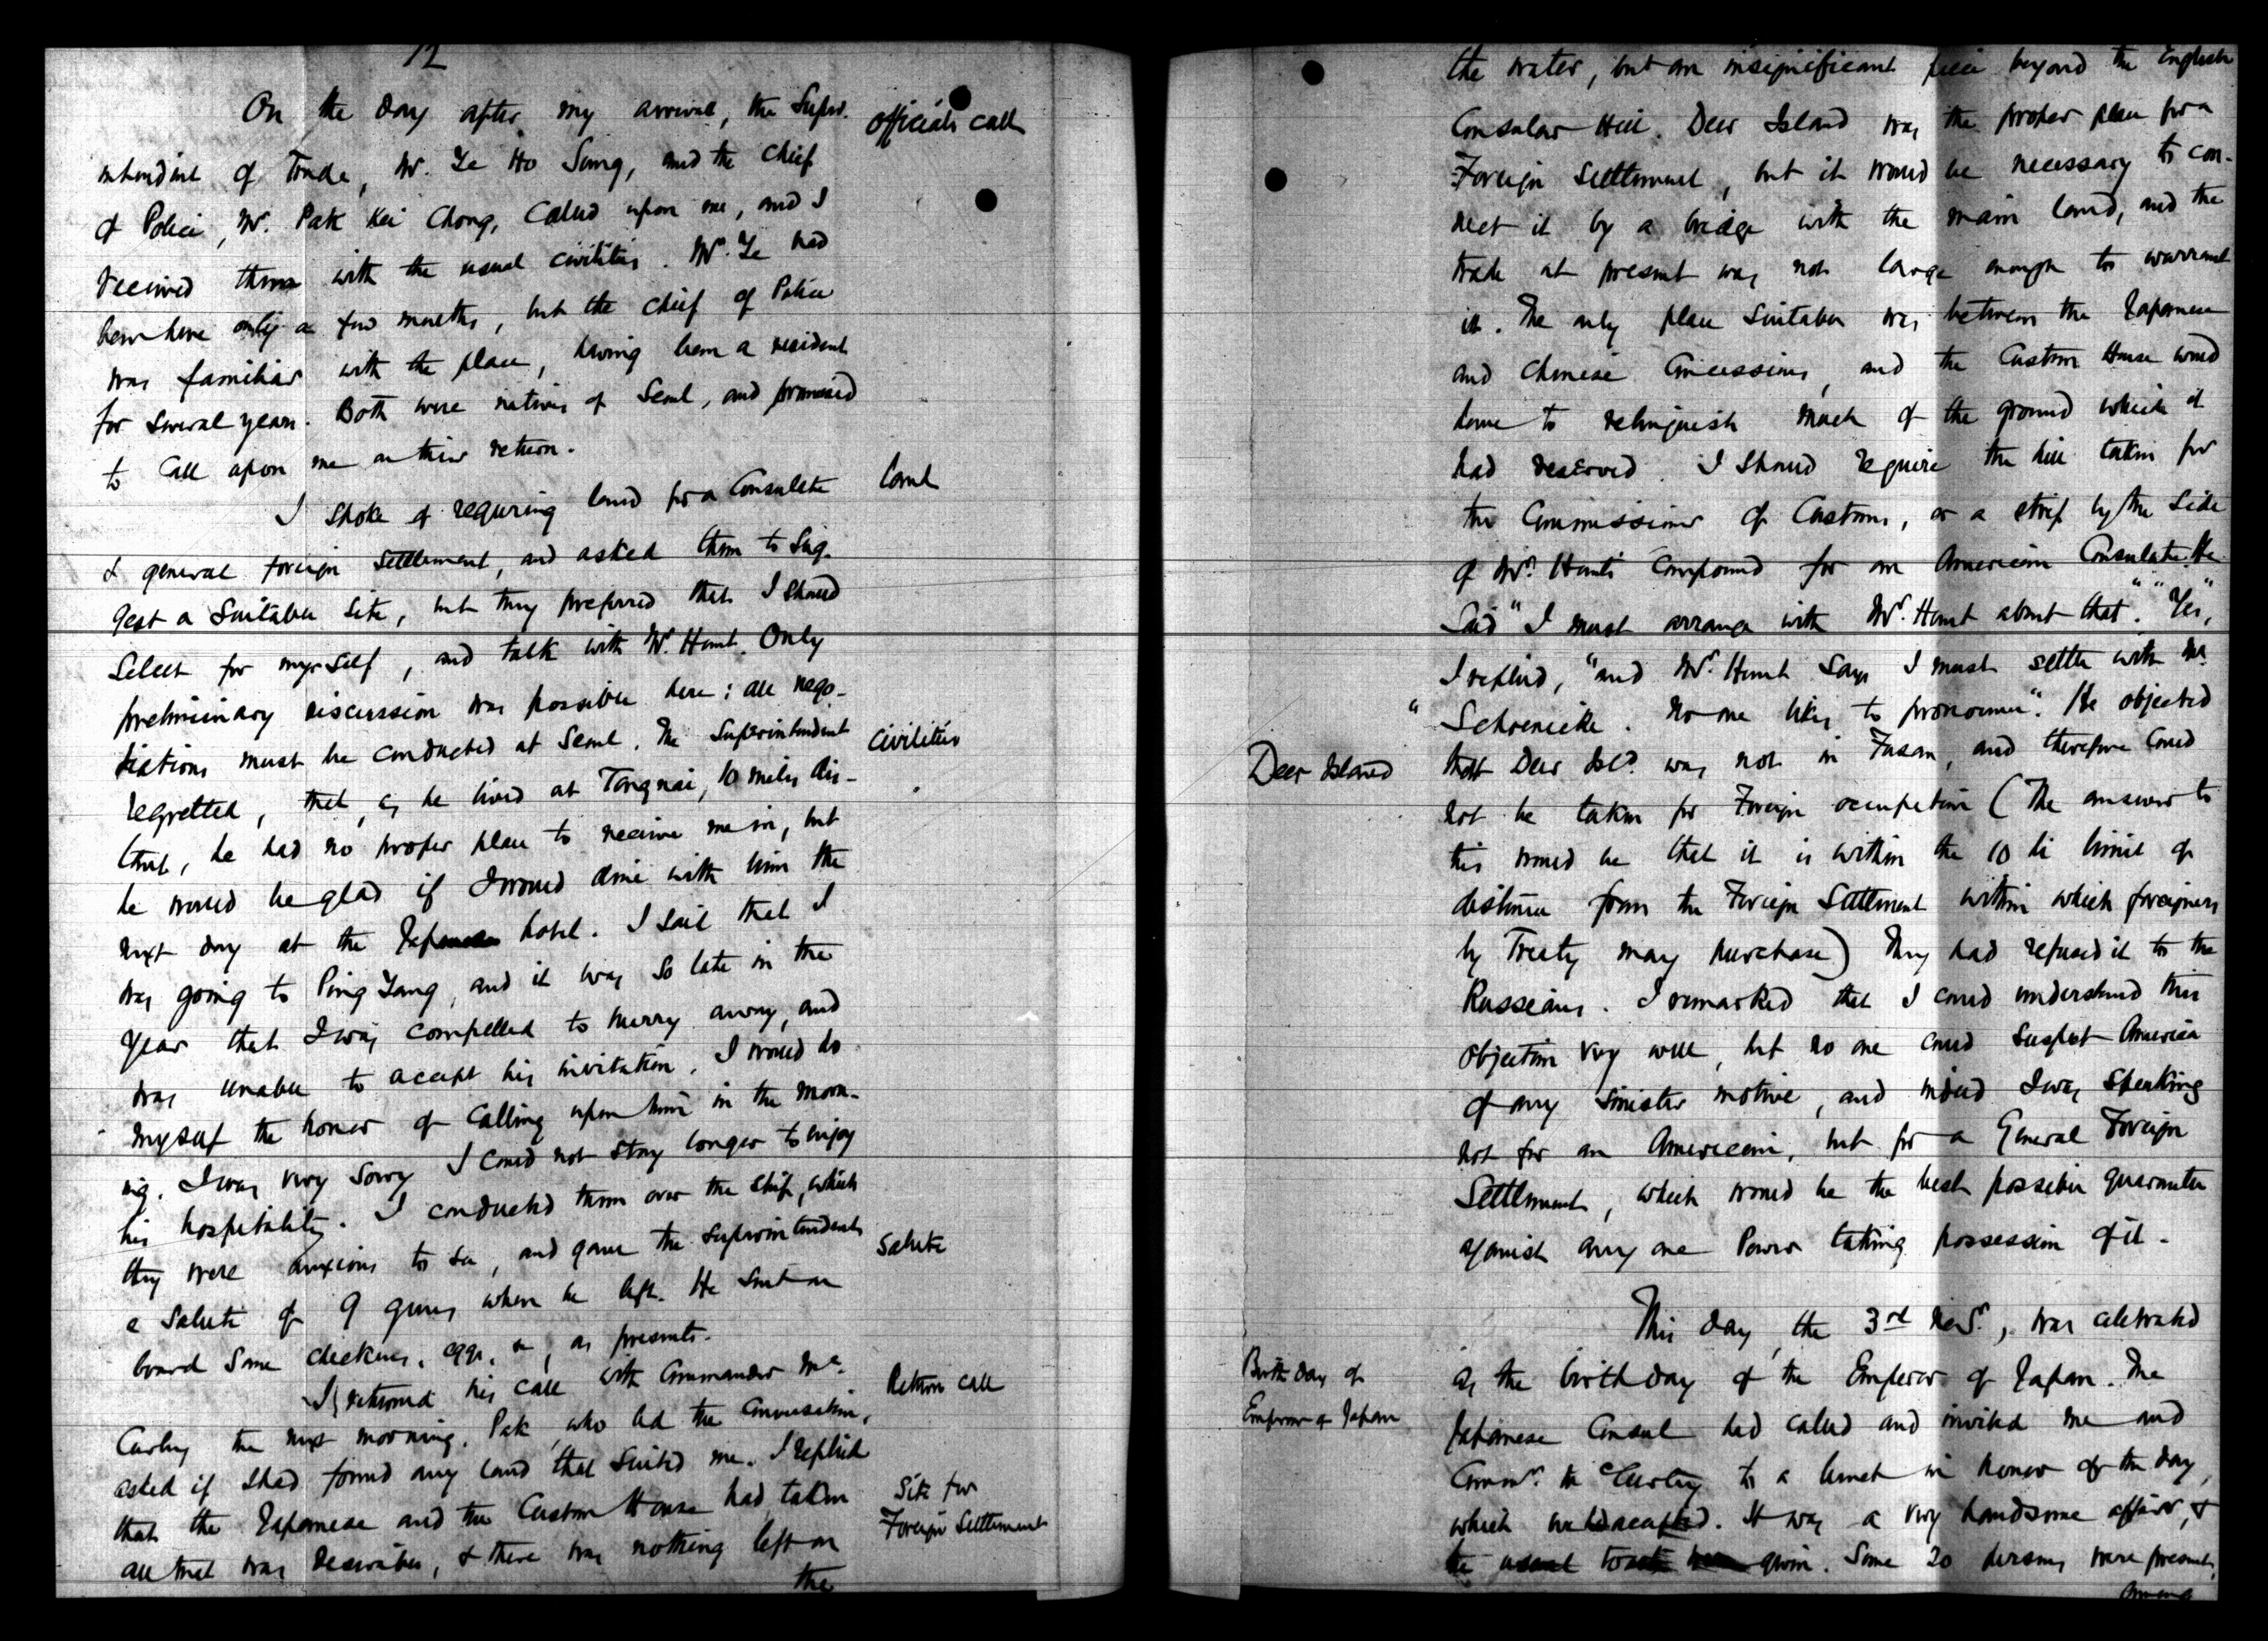 12
On the day after my arrival, the Super-
officials call
intendent of Trade, Mr. Ye Ho Sung, and the Chief
of Police, Mr. Pak Kei Chong, called upon me, and I
received them with the usual civilities. Mr. Ye had
been here only a few months, but the Chief of Police
was familiar with the place, having been a resident
for several years. Both were natives of Seoul, and promised
to call upon me on their return.
I spoke of requiring land for a Consulate
Land
& general foreign settlement, and asked them to sug-
gest a suitable site, but they preferred that I should
select for myself, and talk with Mr. Hunt. Only
preliminary discussion was possible here: all nego-
tiations must be conducted at Seoul. The Superintendent
Civilities
regretted, that, as he lived at Tongnai, 10 miles dis-
tant, he had no proper place to receive me in, but
he would be glad if I would dine with him the
next day at the Japanese hotel. I said that I
was going to Ping Yang, and it was so late in the
year that I was compelled to hurry away, and
was unable to accept his invitation. I would do
myself the honor of calling upon him in the morn-
ing. I was very sorry I could not stay longer to enjoy
his hospitality. I conducted them over the ship, which
they were anxious to see, and gave the Superintendent
Salute
a salute of 9 guns when he left. He sent on
board some chickens, eggs, &c, as presents.
I returned his call with Commander Mc
Return call
Curley the next morning. Pak, who led the conversation,
asked if I had found any land that suited me. I replied
that the Japanese and the Custom House had taken
Site for
Foreign Settlement
all that was desirable, & there was nothing left on
the
the water, but an insignificant piece beyond the English
Consular Hill. Deer Island was the proper place for a
Foreign Settlement, but it would be necessary to con-
nect it by a bridge with the main land, and the
trade at present was not large enough to warrant
it. The only place suitable was between the Japanese
and Chinese Concessions, and the Custom House would
have to relinquish much of the ground which it
had reserved. I should require the hill taken for
the Commissioner of Customs, or a strip by the side
of Mr. Hunt's compound for an American Consulate. He
said "I must arrange with Mr. Hunt about that". "Yes",
I replied, "and Mr. Hunt says I must settle with Mr.
"Schoenicke. No one likes to pronounce". He objected
Deer Island
that Deer Isld. was not in Fusan, and therefore could
not be taken for Foreign occupation (The answer to
this would be that it is within the 10 li limit of
distance from the Foreign Settlement within which foreigners
by Treaty may purchase) They had refused it to the
Russians. I remarked that I could understand this
objection very well, but no one could suspect America
of any sinister motive, and indeed I was speaking
not for an American, but for a General Foreign
Settlement, which would be the best possible guarantee
against any one Power taking possession of it.
This day, the 3rd Novr., was celebrated
Birthday of
Emperor of Japan
as the birthday of the Emperor of Japan. The
Japanese Consul had called and invited me and
Commr. McCurley to a lunch in honor of the day,
which we accepted. It was a very handsome affair, &
the usual toasts were given. Some 20 persons were present,
among